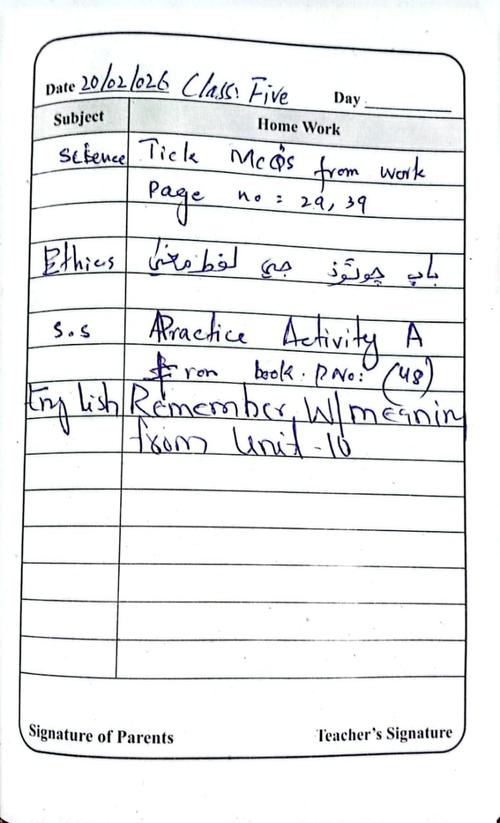 Date 20/02/026 Class: Five Day
Subject Home Work
Science Tick McQ's from work
Page no: 29, 39
Ethics باب چوٿون جي لفظ معنيٰ
S.S Practice Activity A
From book. P.No: (48)
English Remember W/meaning
from Unit-10
Signature of Parents Teacher's Signature